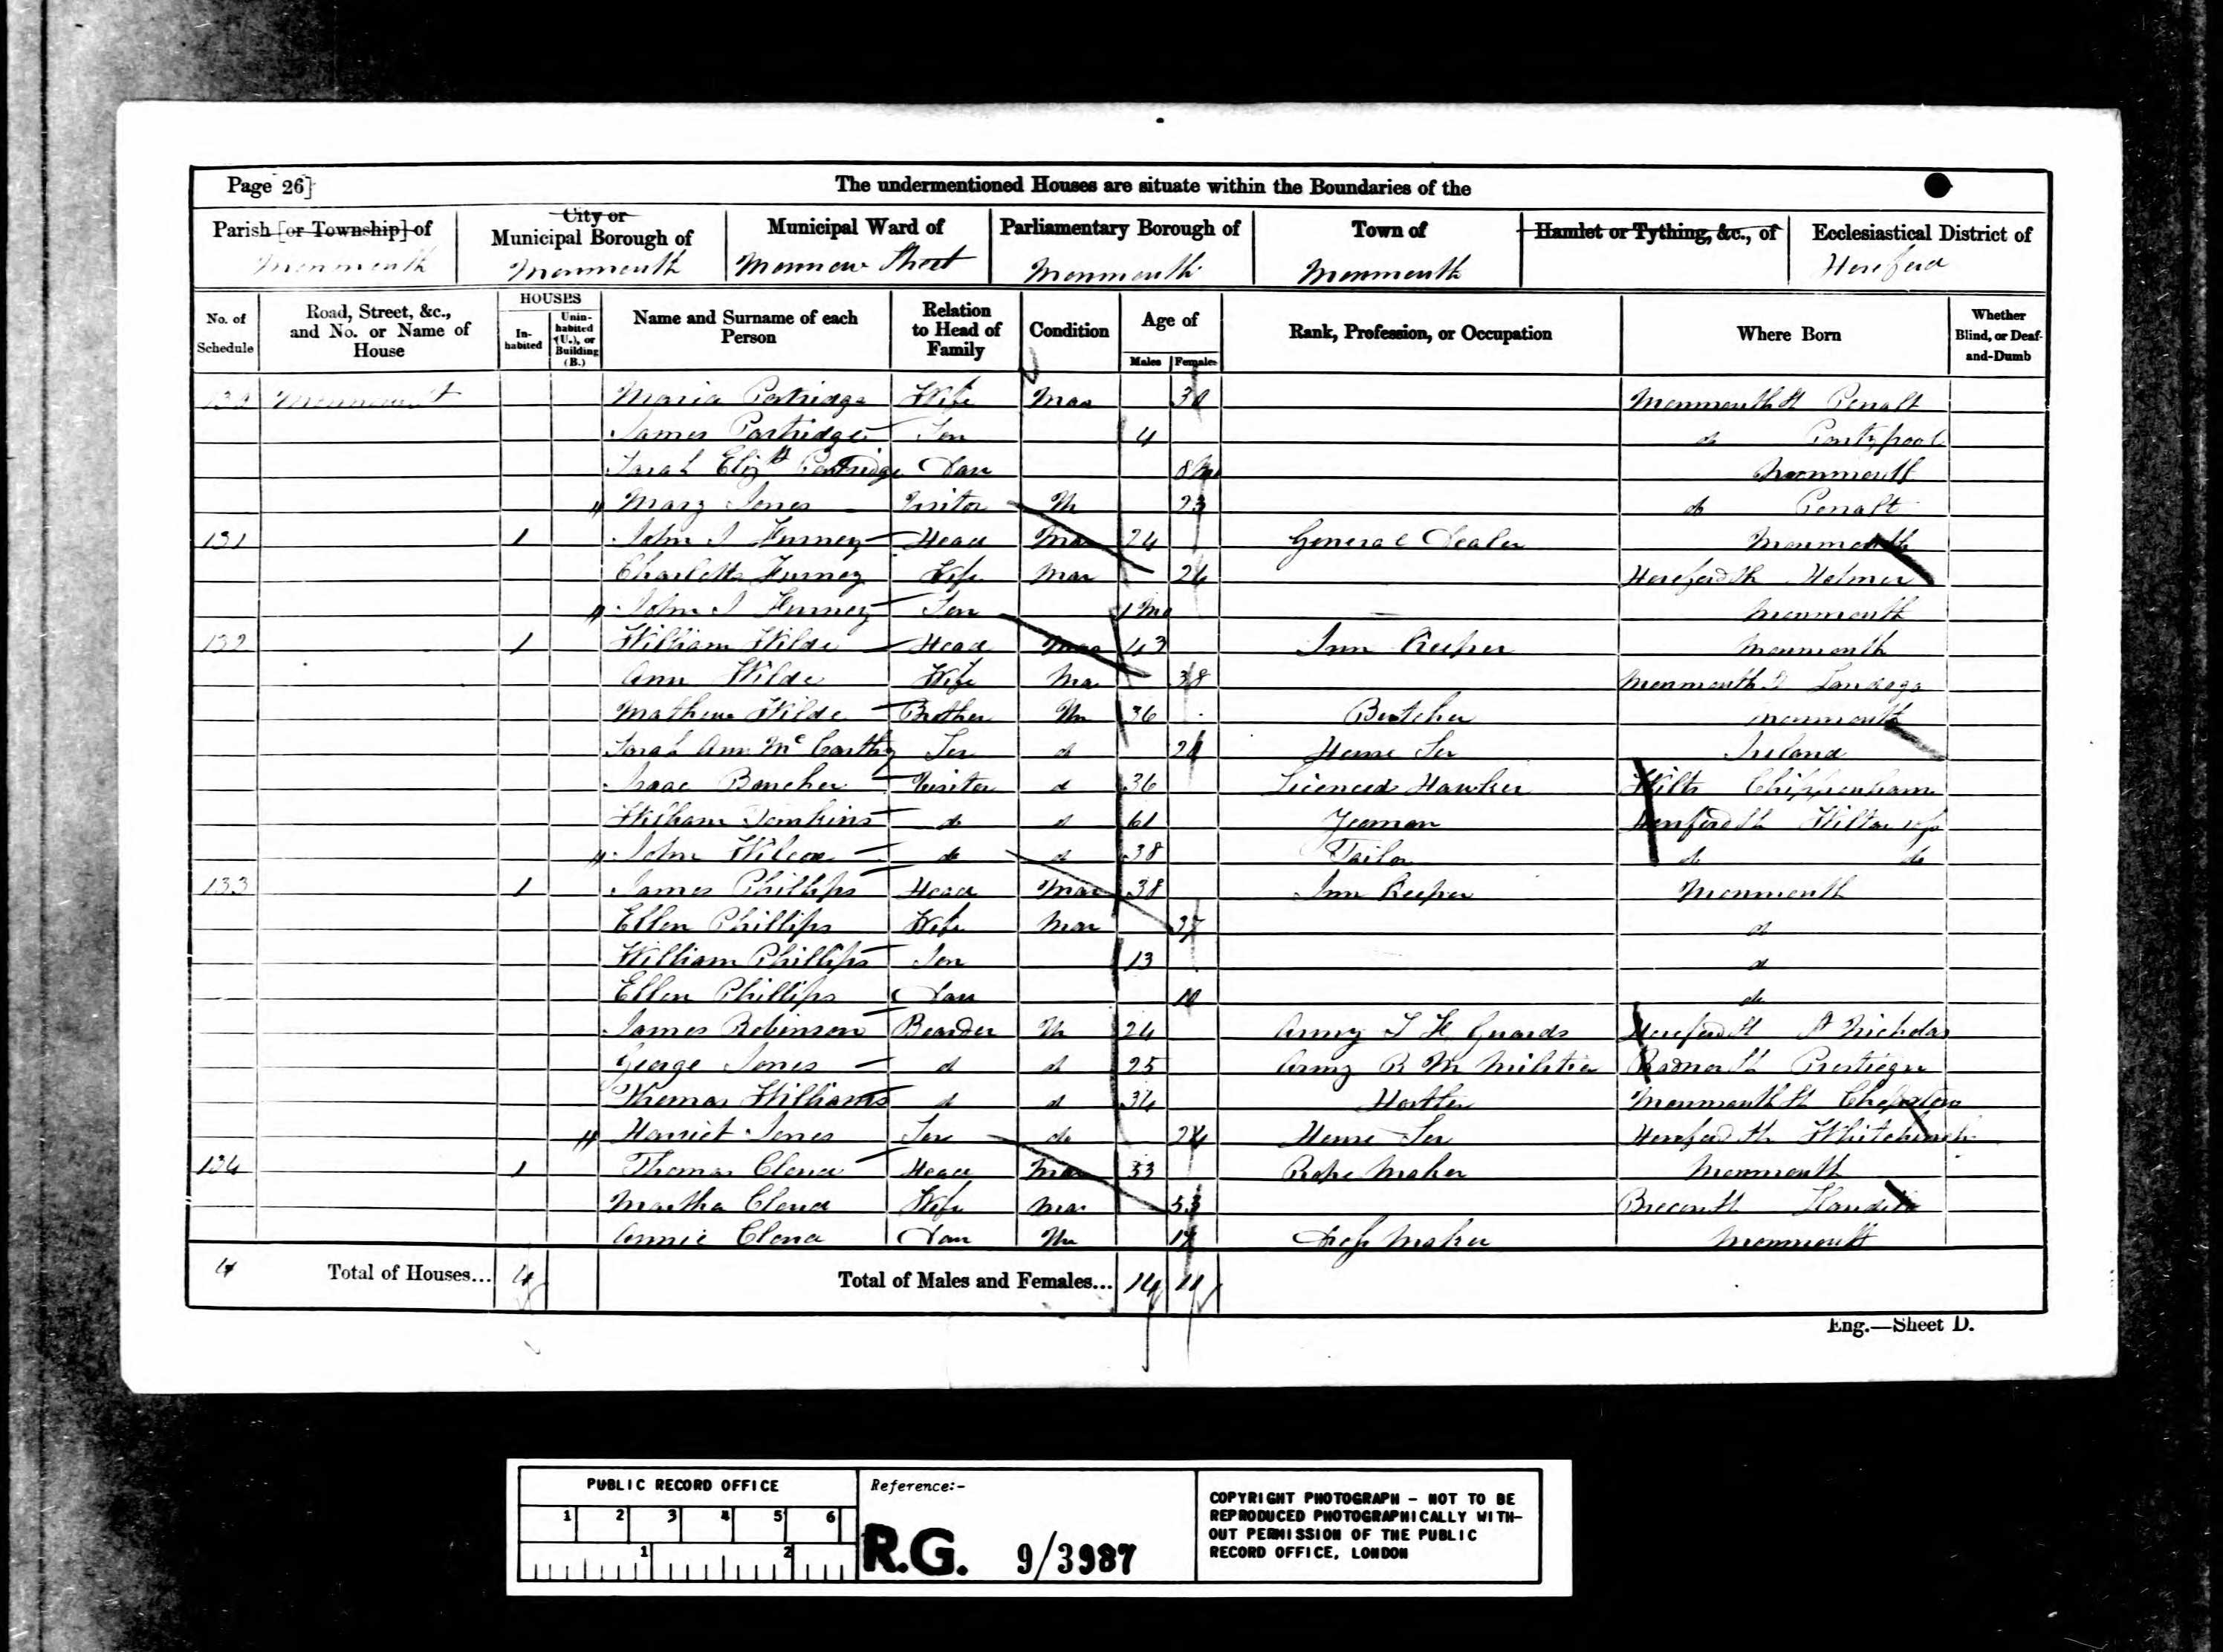 Page 26]
The undermentioned Houses are situate within the Boundaries of the
Parish [or Township] of Monmouth
City or Municipal Borough of Monmouth
Municipal Ward of Monnow Street
Parliamentary Borough of Monmouth
Town of Monmouth
Hamlet or Tything, &c., of
Ecclesiastical District of Hereford
No. of Schedule
Road, Street, &c., and No. or Name of House
HOUSES
Inhabited
Uninhabited (U.), or Building (B.)
Name and Surname of each Person
Relation to Head of Family
Condition
Age of
Males
Females
Rank, Profession, or Occupation
Where Born
Whether Blind, or Deaf-and-Dumb
Maria Partridge Wife Mar 30 Penalt
James Partridge Son 4 do Pontypool
Sarah Elizth Partridge Dau Monmouth
Mary Jones Visitor Un 23 do Penalt
131 1 John Furney Head Mar 24 General Dealer Monmouth
Charlotte Furney Wife Mar Herefordsh Holmer
John Furney Son 1 Mo Monmouth
132 1 William Wilde Head Mar 43 Inn Keeper Monmouth
Ann Wilde Wife Mar 38 Landogo
Mathew Wilde Brother Un 36 Butcher Monmouth
Sarah Ann McCarthy Ser d House Ser Ireland
Isaac Visitor d 36 Licenced Hawker Wilts Chippenham
William Jenkins do d 61 Yeoman
John Wilcox do d 38 Tailor do do
133 1 James Phillips Head Mar 38 Inn Keeper Monmouth
Ellen Phillips Wife Mar 37 d
William Phillips Son 13 d
Ellen Phillips Dau 10 do
James Robinson Boarder Un 24 Army Guards St Nicholas
George Jones d d 25 Army R M Militia Presteign
Thomas Williams d d 34 Hostler Chepstow
Harriet Jones Ser do House Ser Herefordsh Whitchurch
134 1 Thomas Head Mar 53 Rope Maker Monmouth
Martha Wife Mar 53
Annie Dau Un Dress Maker Monmouth
4 Total of Houses... 4 Total of Males and Females... 14 11
Eng.—Sheet D.
PUBLIC RECORD OFFICE
1 2 3 4 5 6
1 2
Reference:-
R.G. 9/3987
COPYRIGHT PHOTOGRAPH - NOT TO BE
REPRODUCED PHOTOGRAPHICALLY WITH-
OUT PERMISSION OF THE PUBLIC
RECORD OFFICE, LONDON